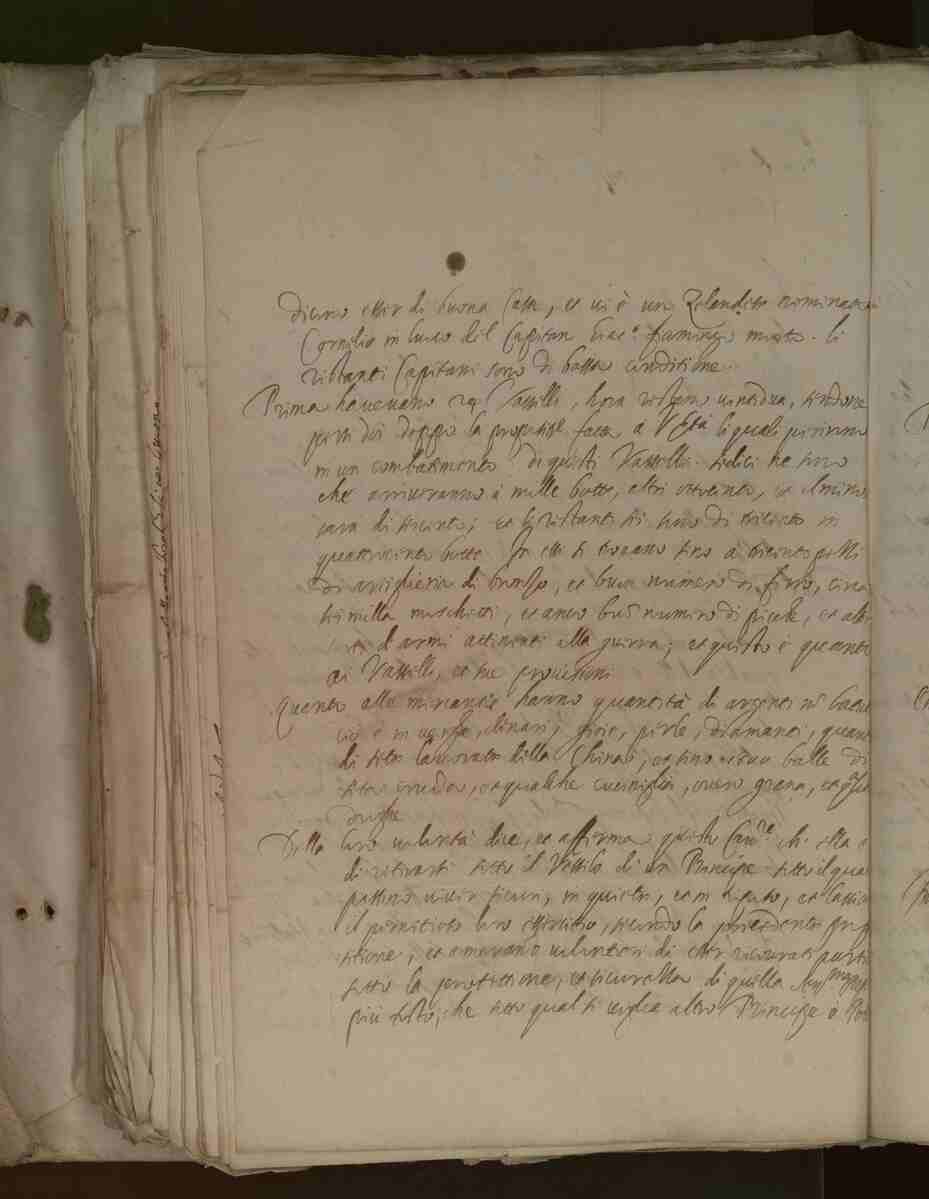 dicono esser di buona Casa, et ui è un Zelandese nominato
Cornelio in luoco del Capitan Giac.º fiamengo morto. li
restanti Capitani sono di bassa conditione.
Prima haueuano Vasselli, hora restano uintidua, essendone
persi doi doppo la propositione fatta a V. Ser.tà li quali perirono
in un combatimento. di questi Vasselli sedici ne sono
che arriueranno à mille botte, altri ottocento, et il minore
sara di seicento; et li restanti sei sono di trecento in
quattrocento botte. In essi si trouano sino a trecento pezzi
di artigliaria di bronzo, et buon numero di ferro, circa
sei milla moschetti, et anco bon numero di picche, et altre
sorti d'armi attinenti alla guerra; et questo è quanto
ai Vasselli, et sue prouisioni.
Quanto alle mercantie hanno quantità di argenti
in uerghe, dinari, gioie, perle, diamanti,
di seta lauorata della China, et sino balle di
seta cruda, et qualche cuciniglia, ouero grana, et
droghe
Della loro uolontà dice, et afferma questo Cau.re che essa è
di ritirarsi sotto il Vessilo di un Principe sotto il quale
possino uiuer sicuri, in quiete, et in riposo, et lassiar
il pernitioso loro essercitio, secondo la precedente
et ameriano uolentieri di esser riceuuti
sotto la protettione, et sicurezza di quella Ser.ma
più tosto, che sotto qual si uoglia altro Principe ò